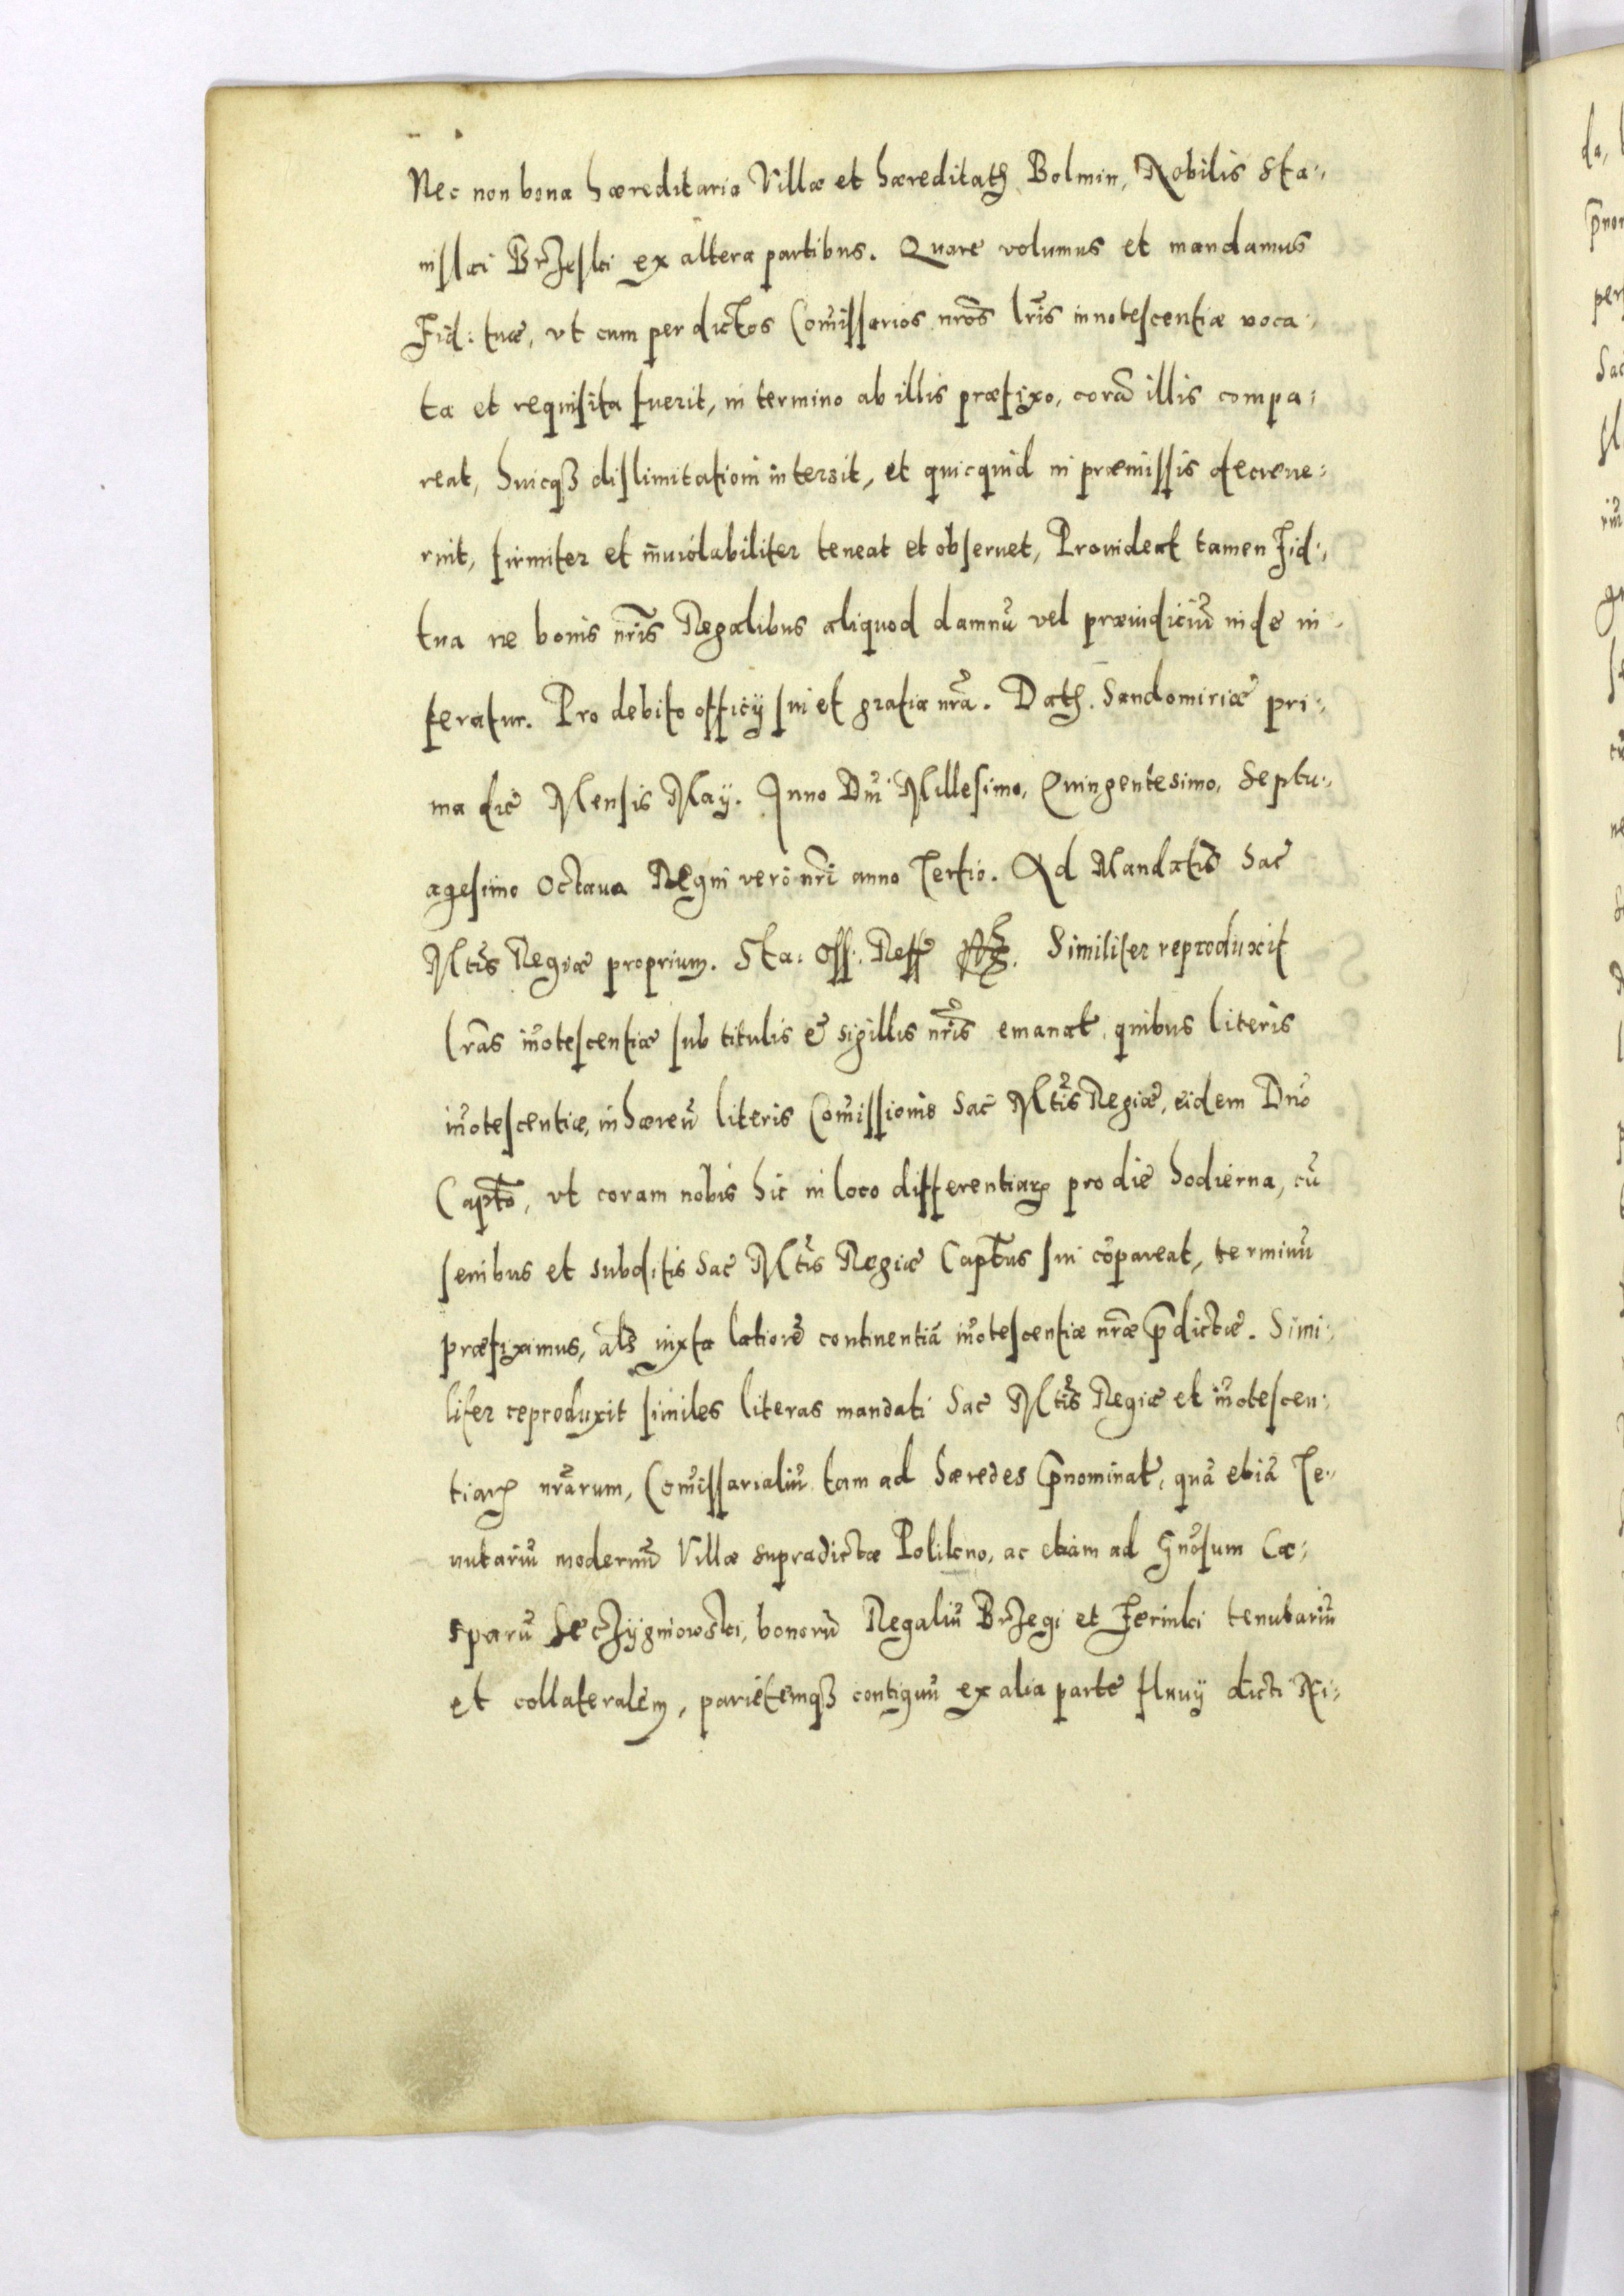 Nec non bona hæreditaria Villæ et hæreditatꝭ Bolmin, Nobilis Sta:,
nislai Brzeski ex altera partibus. Quare volumus et mandamus
Fid: tuæ, vt cum per dictos Com̃issarios nr̃os lr̃is innotescentiæ voca:,
ta et requisita fuerit, in termino ab illis præfixo, corã illis compa:
reat, huicqȝ dislimitationi intersit, et quicquid in præmissis decreue:
rint, firmiter et inuiolabiliter teneat et obseruet, Prouideat tamen Fid:,
tua ne bonis nr̃is Regalibus aliquod damnũ vel præiudiciũ inde in:
feratur. Pro debito officÿ sui et gratia nr̃a. Datꝭ. Sandomiriæ pri:,
ma die Mensis Maÿ. Anno Dnĩ Millesimo, Quingentesimo, Septu:,
agesimo Octaua Regni verò nr̃i anno Tertio. Ad Mandatũ Sac̃
Mt̃is Regiæ proprium. Sta: Oss:. Reff̃ Similiter reproduxit
lr̃as iñotescentiæ sub titulis & sigillis nr̃is emanat̃, quibus literis
iñotescentiæ, inhæreñ literis Com̃issionis Sac̃ Mt̃is Regiæ, eidem Dñо
Captõ, vt coram nobis hic in loco differentiaꝝ pro die hodierna, cũ
senibus et subditis Sac̃ Mt̃is Regiæ Captũs sui cõpareat, terminũ
præfiximus, alš iuxta latiorẽ continentiã iñotescentiæ nr̃æ p̃dictæ. Simi:,
liter reproduxit similes literas mandati Sac̃ Mt̃is Regiæ et iñotescen:
tiaꝝ nr̃arum, Com̃issarialiũ tam ad hæredes p̃nominat̃, quã etiã Te:,
nutariũ modernũ Villæ supradictæ Polikno, ac etiam ad Gñosum Ca:,
sparũ Seczÿgniowski, bonorũ Regaliũ Brzegi et Zerniki tenutariũ
et collateralem, parietemqȝ contiguũ ex alia parte fluuÿ dicti Ni:,